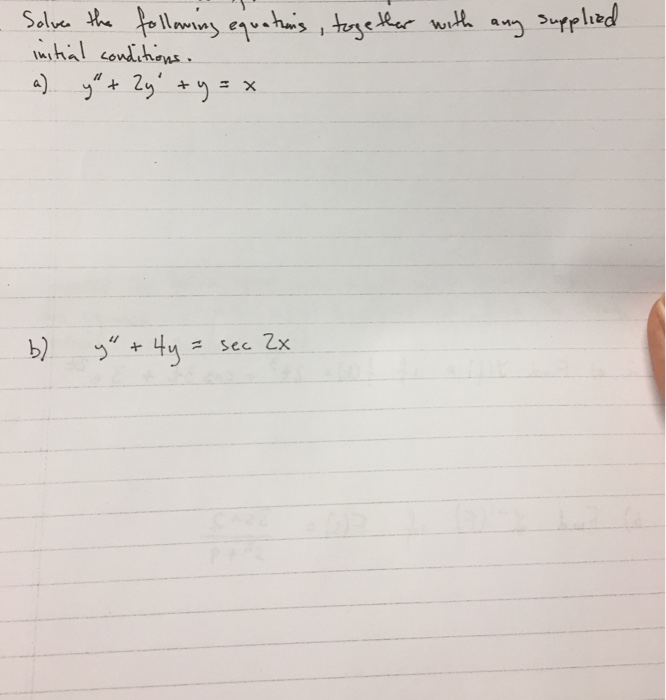 Solve the following equations, together with any supplied
initial conditions.
a) y" + 2y' + y = x
b) y" + 4y = sec 2x